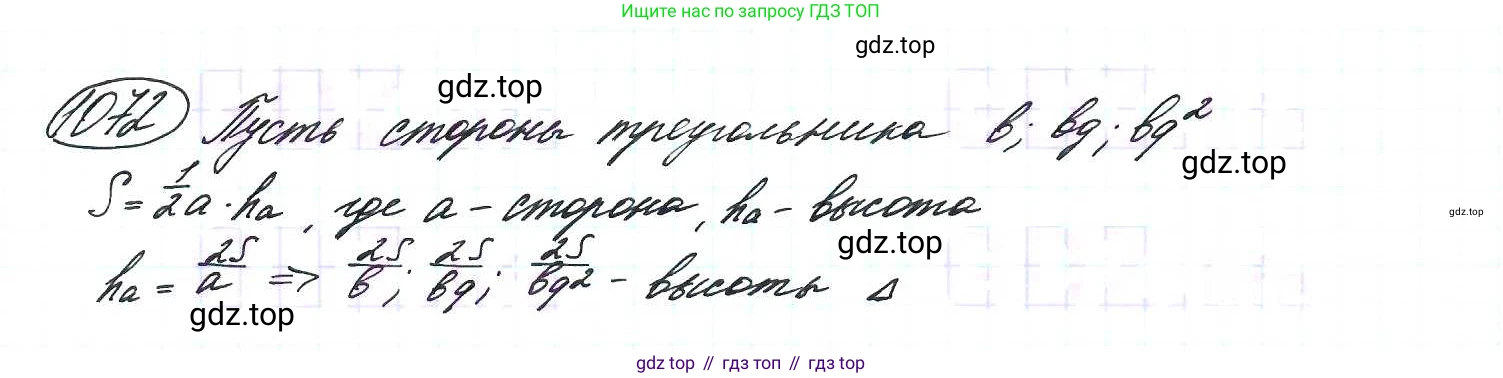 Ищите нас по запросу ГДЗ ТОП
gdz.top
gdz.top
1072 Пусть стороны треугольника b; bq; bq²
gdz.top
S = 1/2 a · hₐ, где a – сторона, hₐ – высота
gdz.top
gdz.top
hₐ = 2S/a => 2S/b; 2S/bq; 2S/bq² – высоты Δ
gdz.top
gdz.top // гдз топ // гдз top